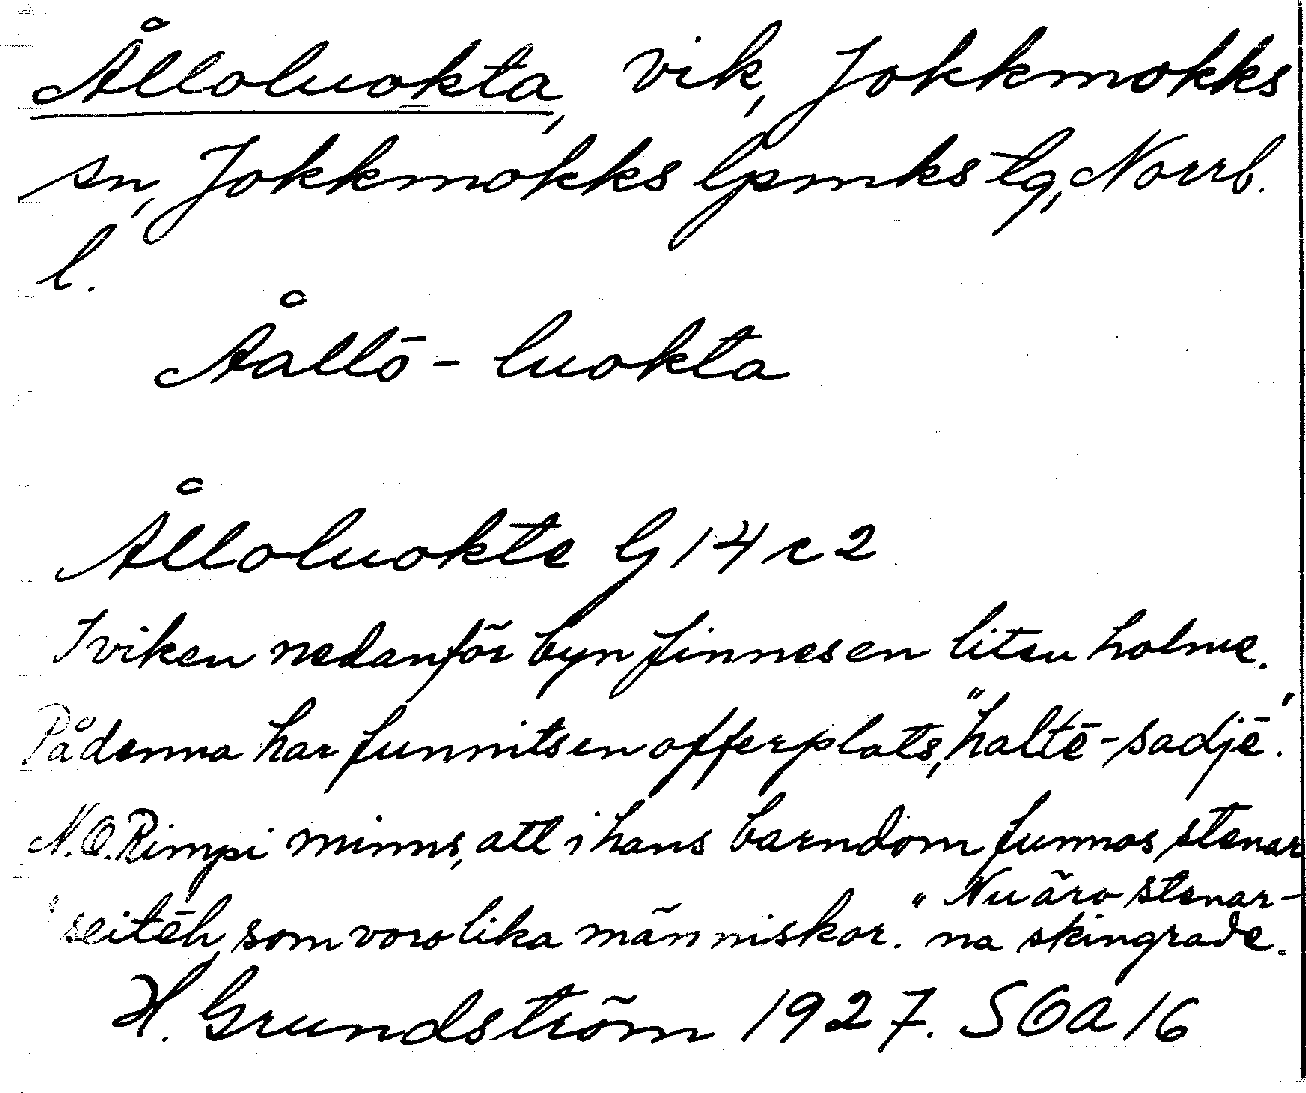 Ålloluokta, vik, Jokkmokks
sn, Jokkmokks lpmks tg, Norrb.
l.
Åallō-luokta
Ålloluokte G 14 c 2
I viken nedanför byn finnes en liten holme.
På denna har funnits en offerplats, "haltē-sadjē".
N.O. Rimpi minns, att i hans barndom funnos stenar
"seitēh, som voro lika människor." Nu äro stenar-
na skingrade.
H. Grundström 1927. SOA 16